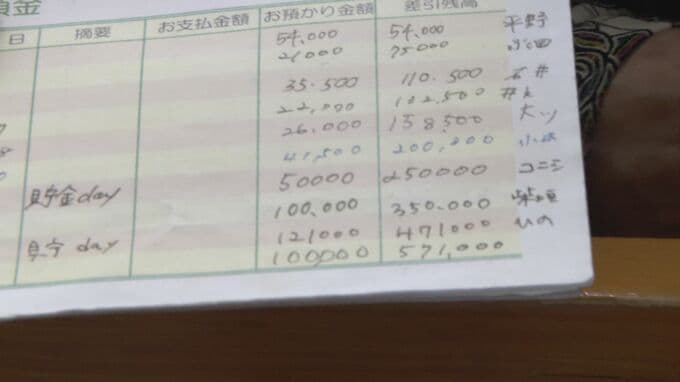 預金
日 摘要 お支払金額 お預かり金額 差引残高
54,000 54,000 平野
21000 75000
35.500 110.500
22,000 132,500
26,000 158,500 大ツ
41,500 200,000
50000 250000 コニシ
貯金day 100,000 350.000
121000 471000 ひの
貯day 100,000 571,000